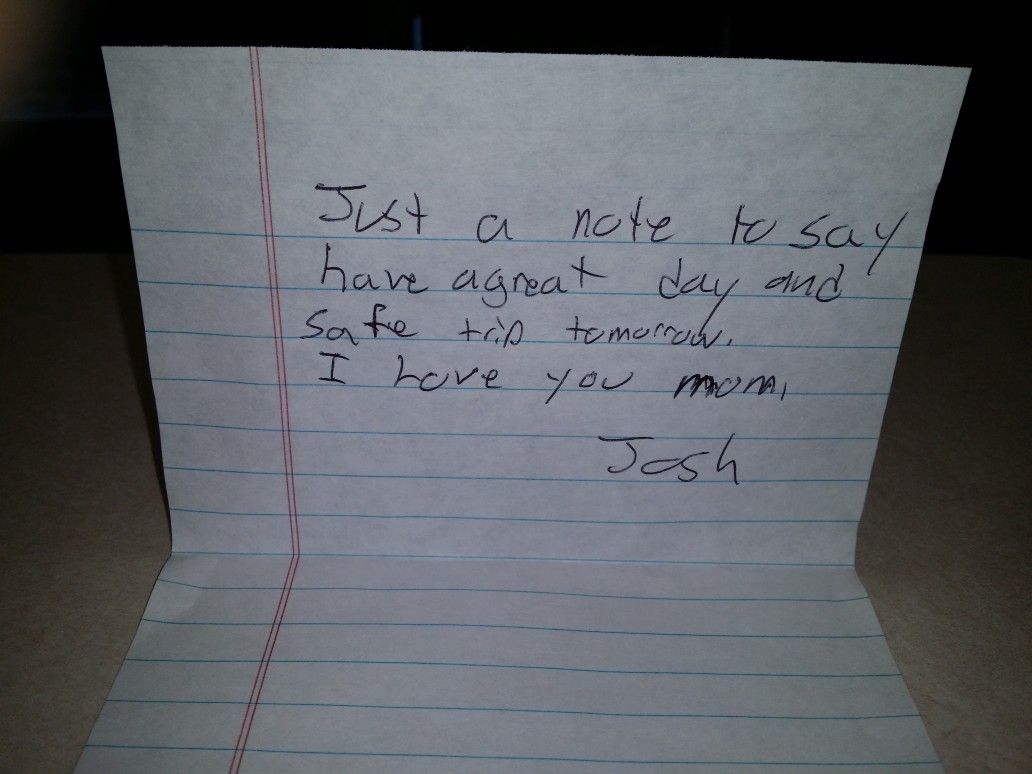 Just a note to say
have a great day and
safe trip tomorrow.
I love you mom,
Josh